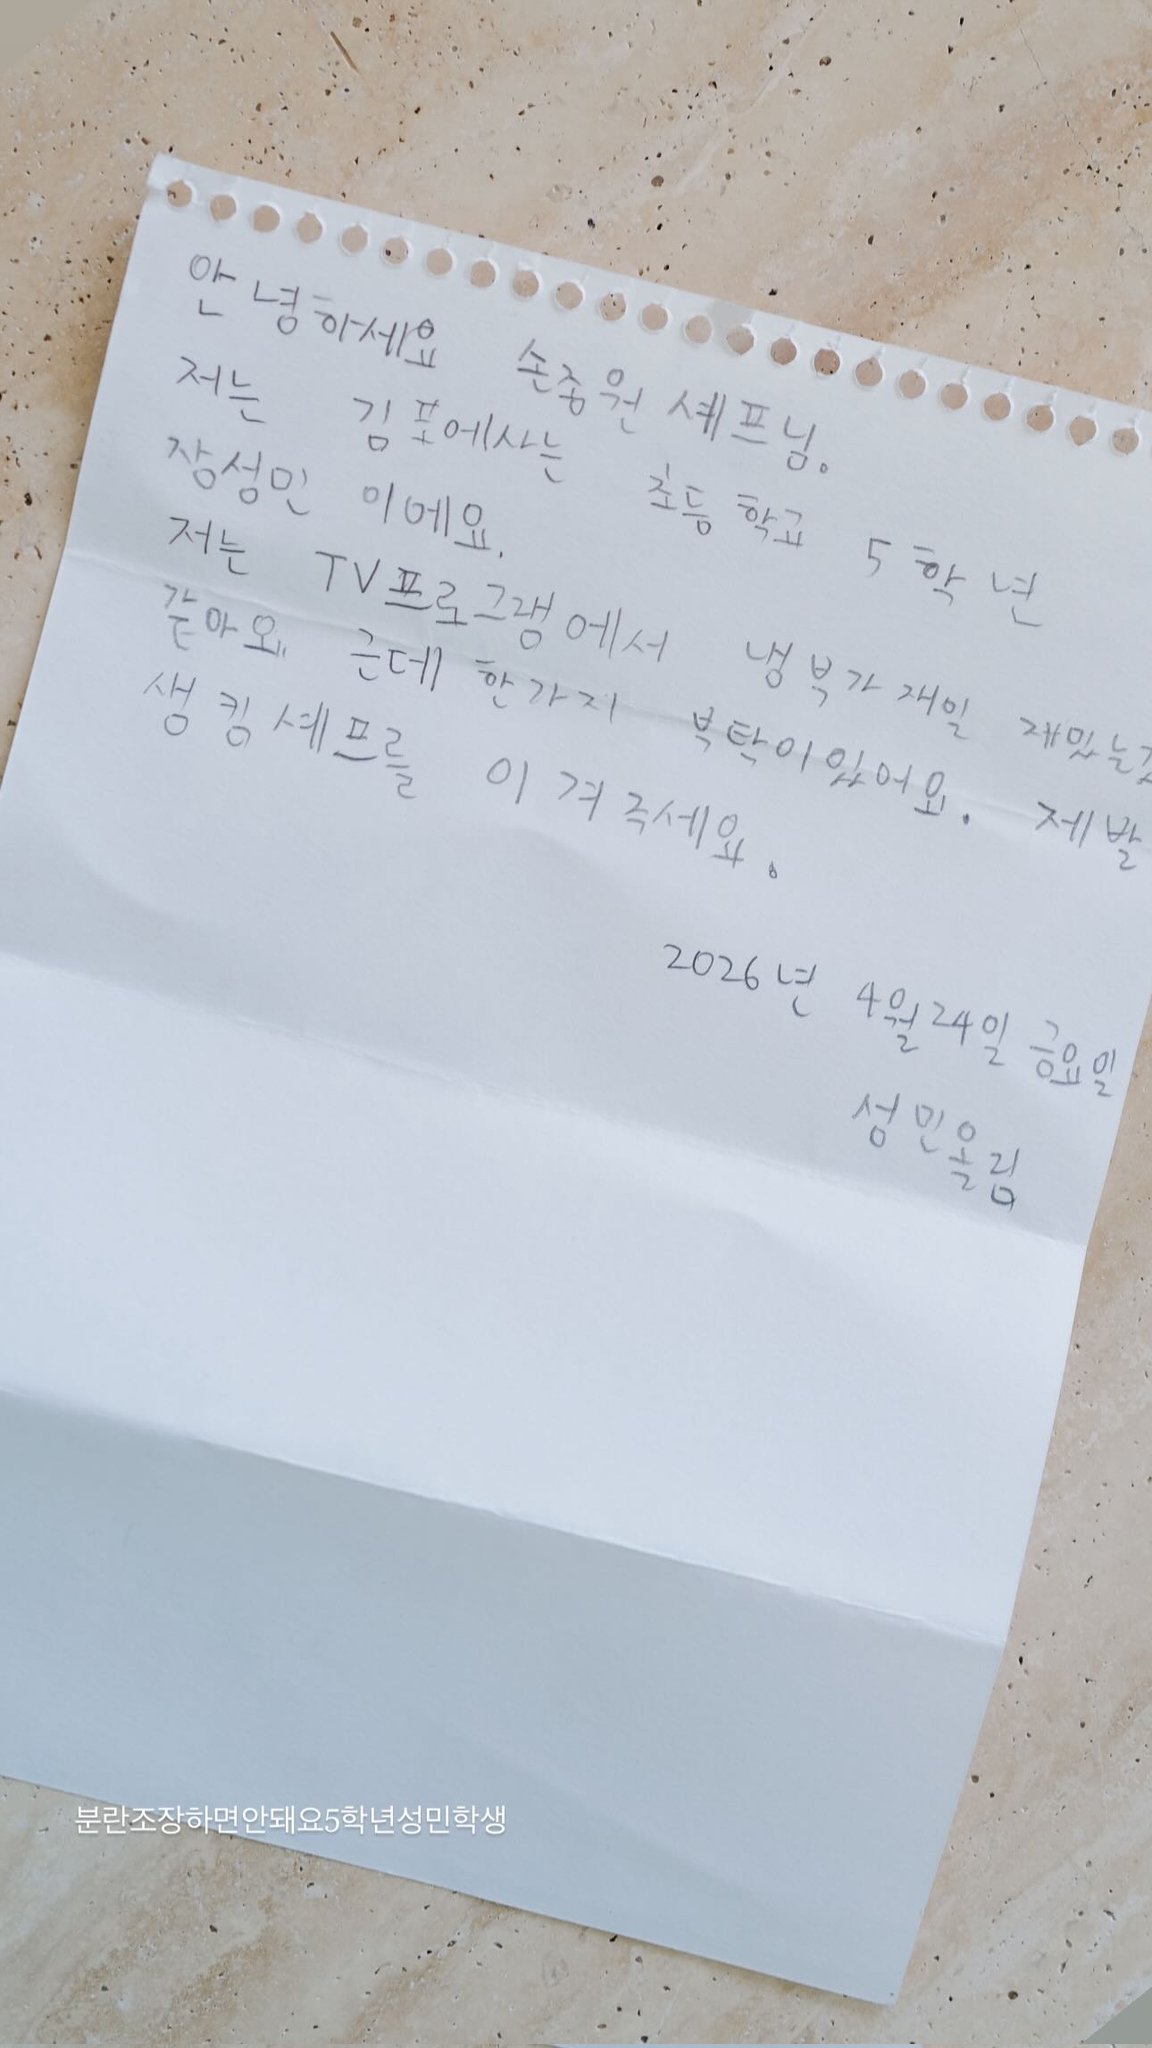 안녕하세요 손종원 셰프님.
저는 김포에사는 초등학교 5학년
장성민 이에요.
저는 TV프로그램에서 냉부가 재일 재밌는것
같아요. 근데 한가지 부탁이있어요. 제발
생킹셰프를 이겨주세요.
2026년 4월24일 금요일
성민올림
분란조장하면안돼요5학년성민학생